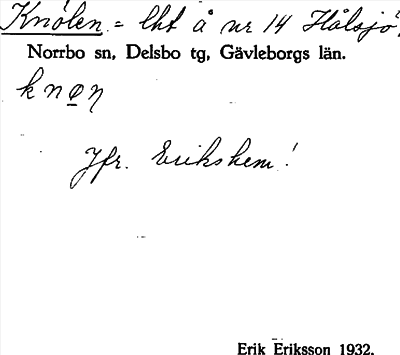 Knölen = lht å nr 14 Hålsjö,
Norrbo sn, Delsbo tg, Gävleborgs län.
knøn
Jfr. Erikshem!
Erik Eriksson 1932.